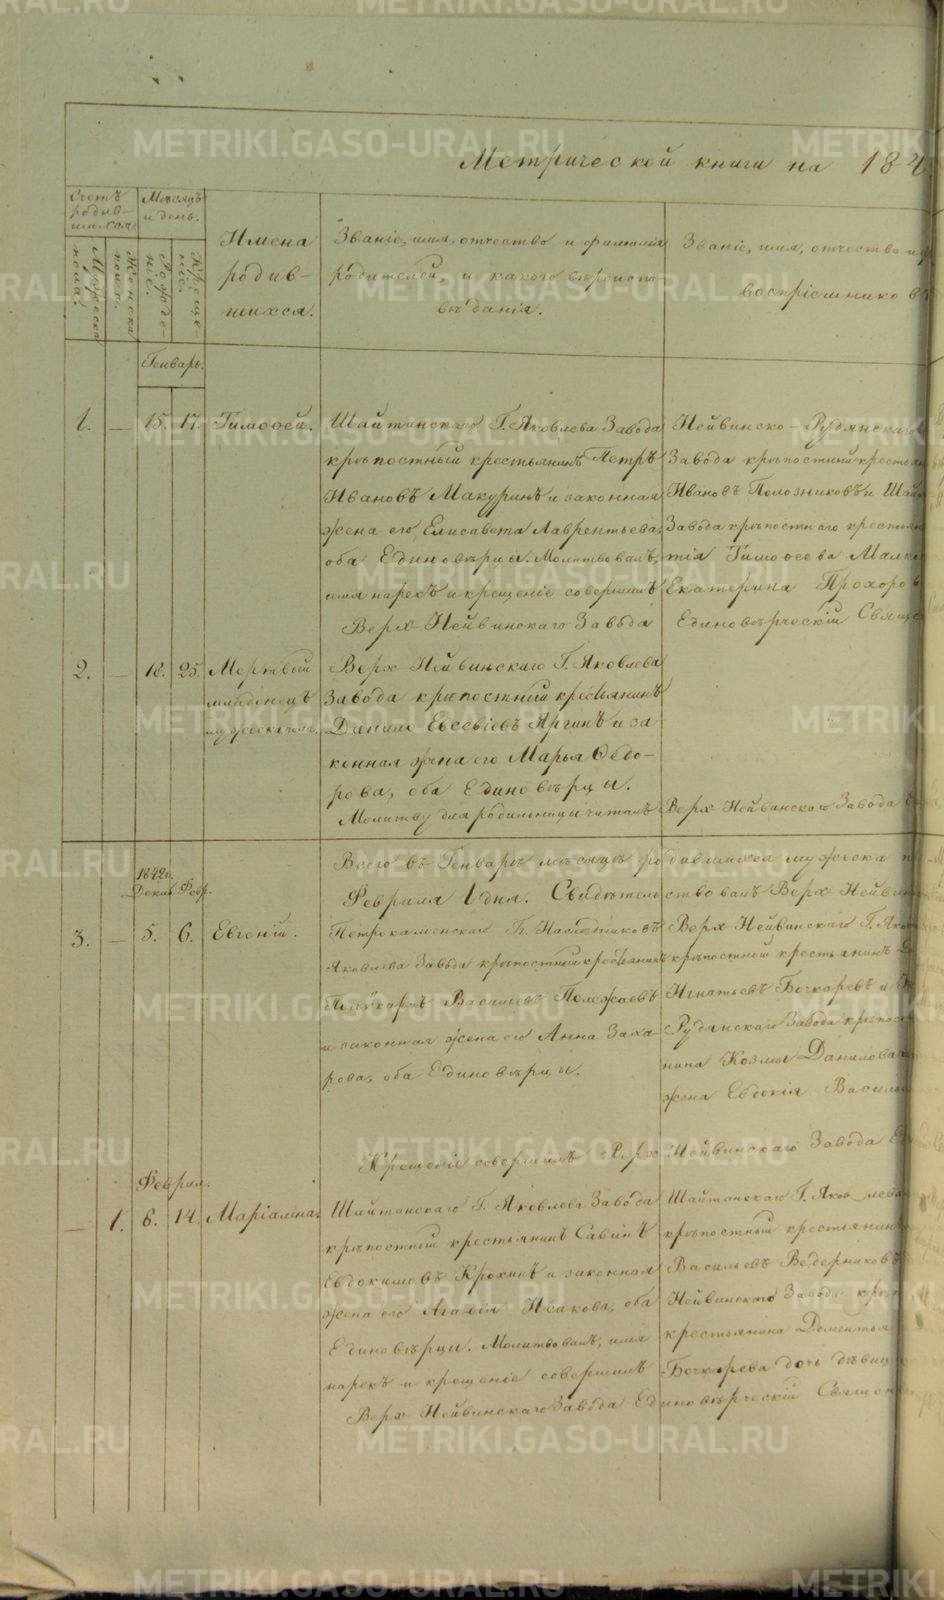 Метрической книги на 184
Счетъ родив-
шихся.
Мѣсяцъ
и день.
Мужеска
пола.
Женска
пола.
Рожде-
нiе.
Креще-
нiе.
Имена
родив-
шихся.
Званiе, имя, отчество и фамилiя
родителей, и какого вѣроиспо
вѣданiя.
Званiе, имя, отчество и ф
воспрiемниковъ
Генварь.
1. — 15. 17. Тимоѳей.
Шайтанскаго Г. Яковлева Завода
крѣпостный крестьянинъ Петръ
Ивановъ Макуринъ и законная
жена его Елисавета Лаврентьева,
оба Единовѣрцы. Молитвовалъ,
имя нарекъ и крещенiе совершилъ
Верх Нейвинскаго Завода
Нейвинско-Рудянскаго
Завода крѣпостный крестья
Ивановъ Полозниковъ и Шай
Завода крѣпостнаго крестья
Тимоѳеева Малко
Екатерина Прохоров
Единовѣрческiй Священ
2. — 18. 25. Мертвый
младенецъ
мужеска пола.
Верх Нейвинскаго Г. Яковлева
Завода крѣпостный крестьянинъ
Данило Евсевiевъ Яргинъ и за-
конная жена его Марья Ѳедо-
рова, оба Единовѣрцы.
Молитву для родильницы читалъ Верх Нейвинскаго Завода
Всего въ Генварѣ мѣсяцѣ родившихся мужеска п
Февраля 1 дня. Свидѣтельствовалъ Верх Нейви
1842 г.
Декаб. Февр.
3. — 5. 6. Евгенiй.
Петрокаменскаго Г. Наслѣдниковъ
Яковлева Завода крѣпостный крестьянинъ
Поликарпъ Васильевъ Полежаевъ
и законная жена его Анна Заха-
рова, оба Единовѣрцы.
Верх Нейвинскаго Г. Яков
крѣпостной крестьянинъ
Игнатьевъ Бочкаревъ и
Рудянскаго Завода крѣпост
нина Козмы Данилова
жена Евдокiя Василь
Крещенiе совершилъ Верх Нейвинскаго Завода Е
Феврал.
— 1. 6. 14. Марiамна.
Шайтанскаго Г. Яковлева Завода
крѣпостный крестьянинъ Савинъ
Евдокимовъ Крохинъ и законная
жена его Агаѳiя Исакова, оба
Единовѣрцы. Молитвовалъ, имя
нарекъ и крещенiе совершилъ
Верх Нейвинскаго Завода Единовѣрческiй Священ
Шайтанскаго Г. Яковлева
крѣпостный крестьянин
Васильевъ Ведерниковъ
Нейвинскаго Завода крѣп
крестьянина Дементья
Бочкарева дочь дѣвиц